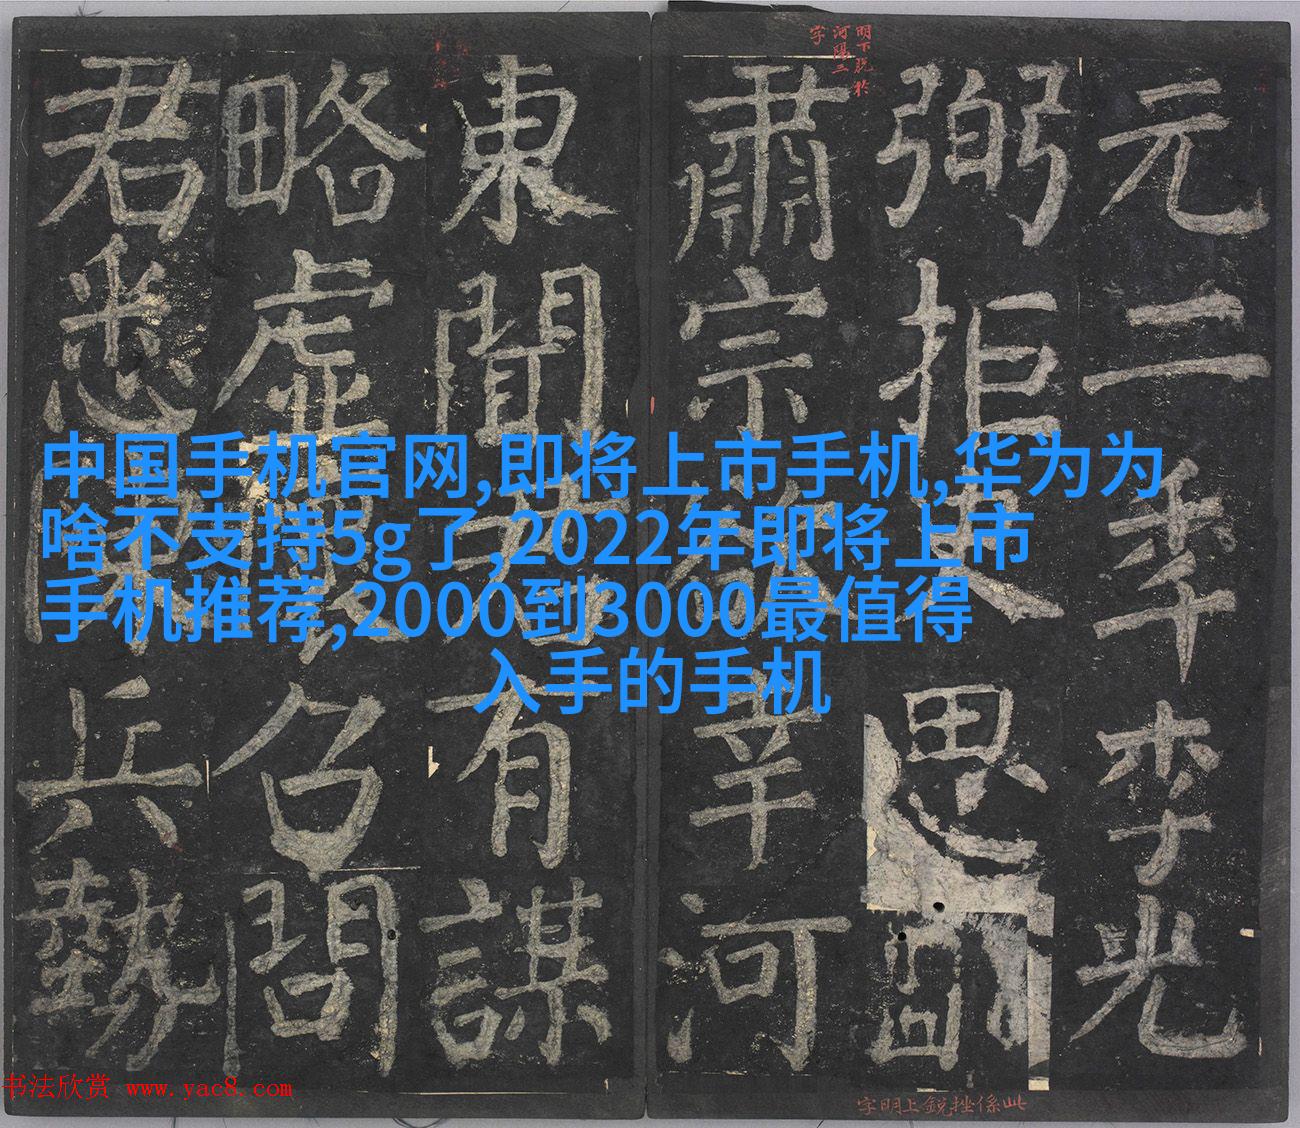 中国手机官网,即将上市手机,华为为
啥不支持5g了,2022年即将上市
手机推荐,2000到3000最值得
入手的手机
明下脱於
河陽二
字
元二年李光
弼拒史思明
肅宗欲幸河
東聞君有謀
略虛懷召問
君悉陳兵勢
此係挫銳上明字
书法欣赏 www.yac8.com